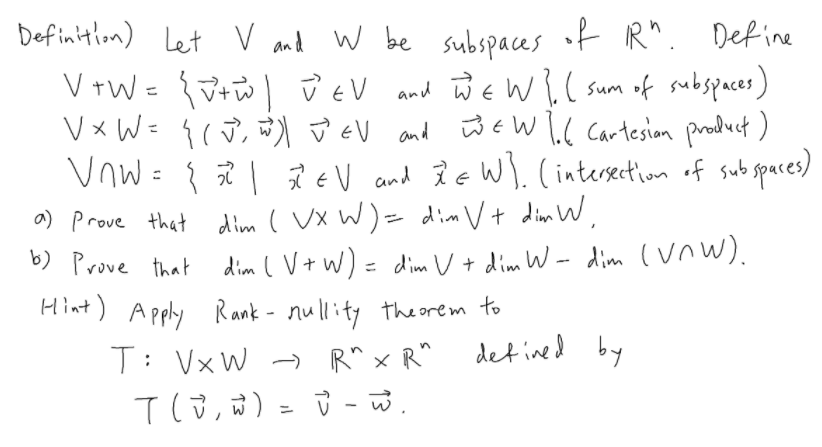 Definition) Let V and W be subspaces of ℝⁿ. Define
V + W = { v⃗+w⃗ | v⃗ ∈ V and w⃗ ∈ W }. ( sum of subspaces )
V × W = { ( v⃗, w⃗ ) | v⃗ ∈ V and w⃗ ∈ W }. ( Cartesian product )
V ∩ W = { x⃗ | x⃗ ∈ V and x⃗ ∈ W }. ( intersection of subspaces )
a) Prove that dim ( V × W ) = dim V + dim W,
b) Prove that dim ( V + W ) = dim V + dim W − dim ( V ∩ W ).
Hint) Apply Rank - nullity theorem to
T : V × W → ℝⁿ × ℝⁿ defined by
T ( v⃗, w⃗ ) = v⃗ − w⃗.